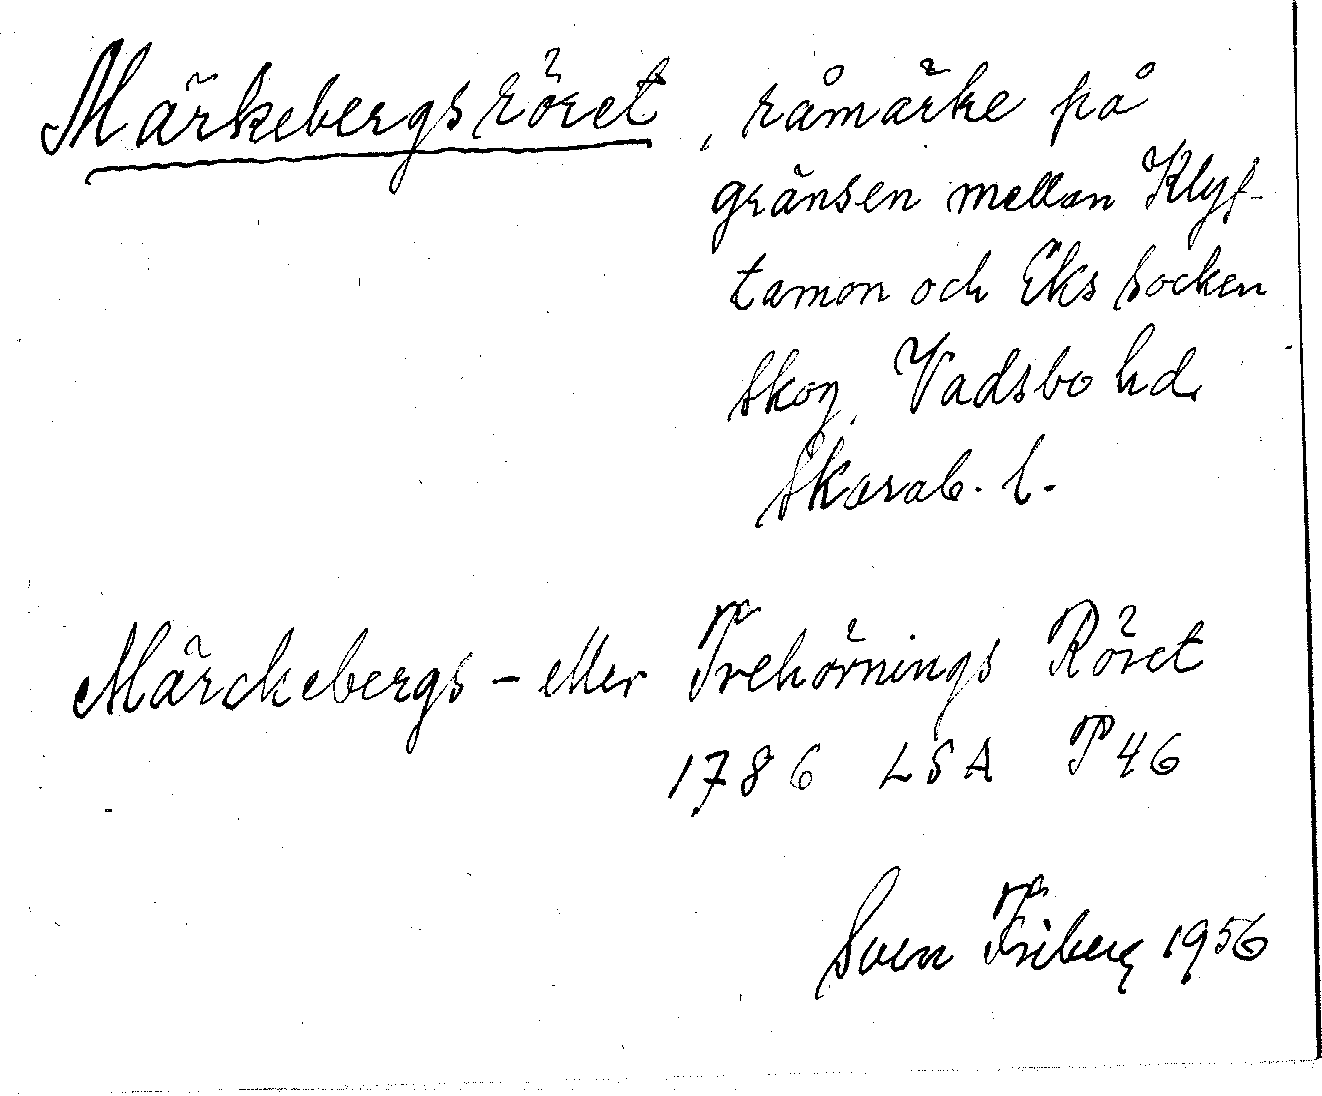 Märkebergsröret, råmärke på
gränsen mellan Klyf-
tamon och Eks socken
skog, Vadsbo hd.
Skarab. l.
Märckebergs - eller Trehörnings Röret
1786 LSA P 46
Sven Friberg 1956